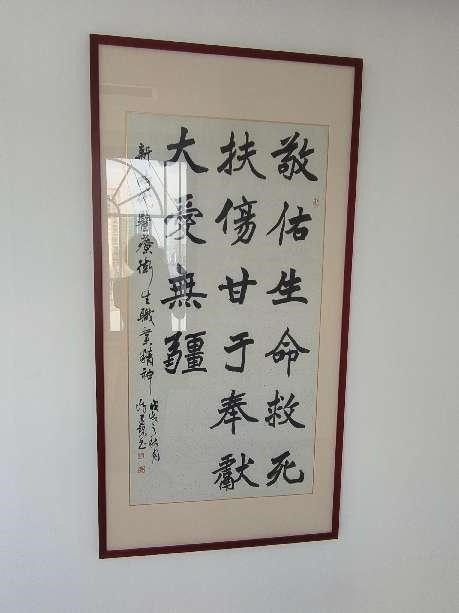 敬佑生命救死
扶傷甘于奉獻
大愛無疆
新時代醫療衛生職業精神